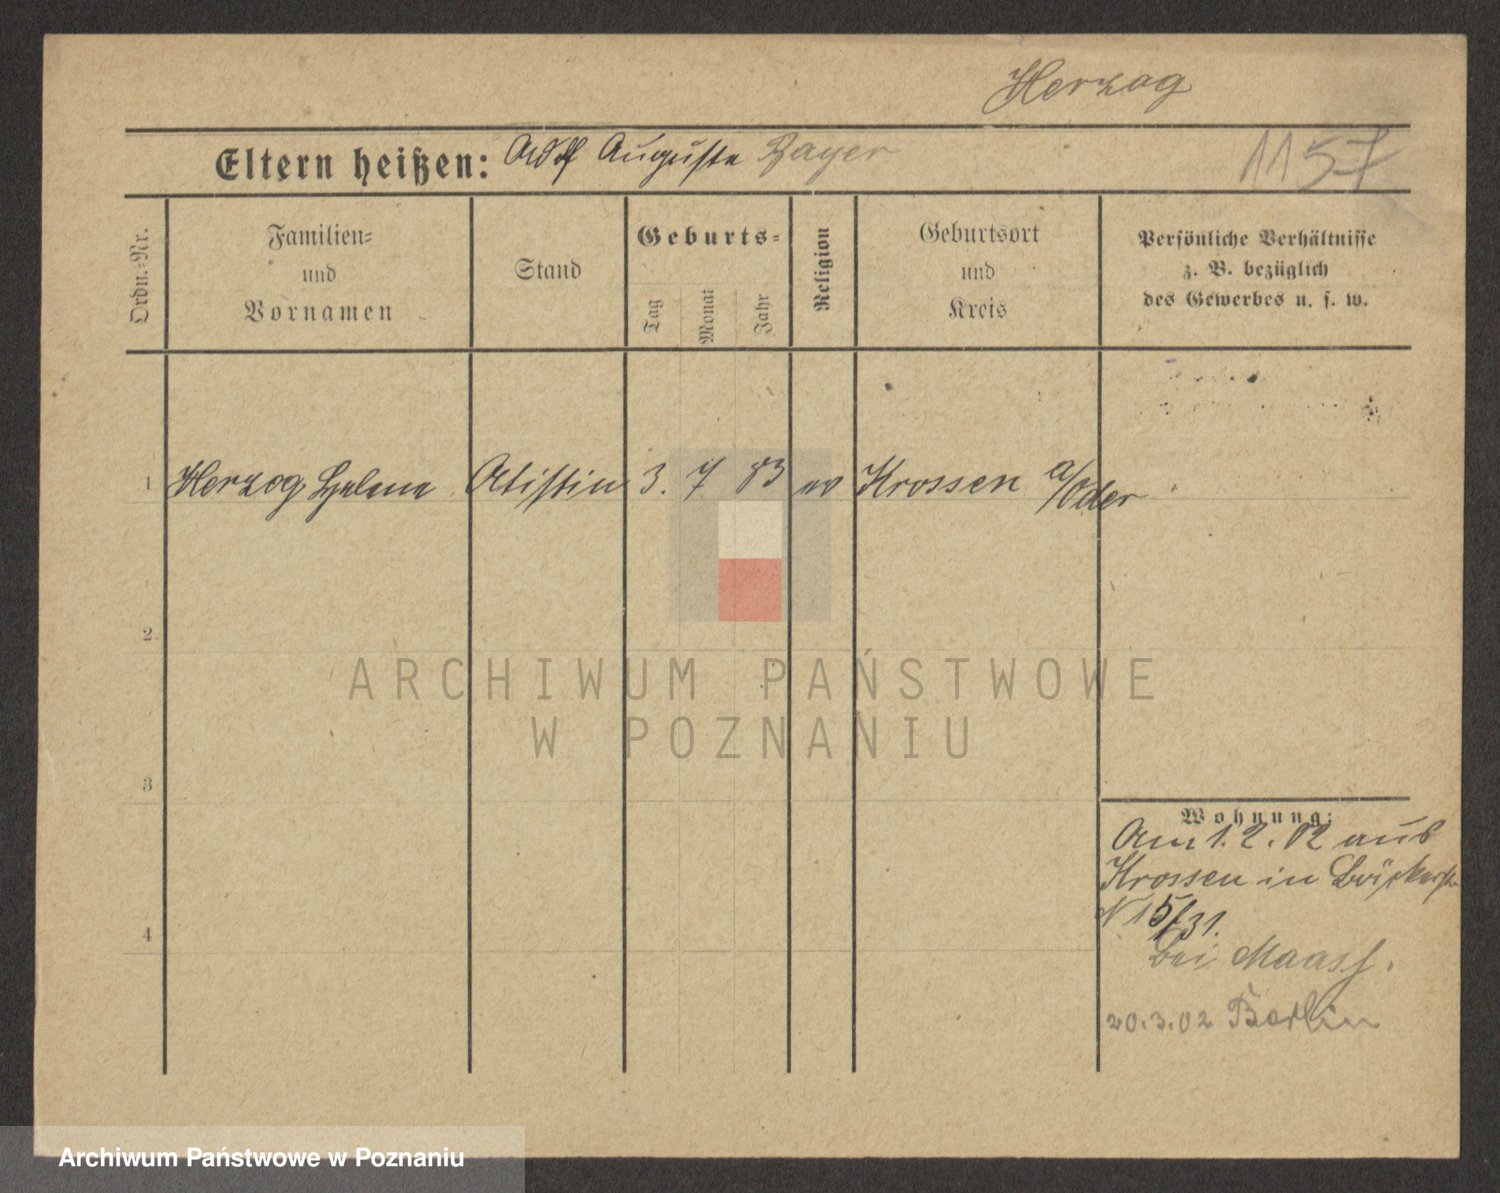 Herzog
Eltern heißen: Adolf Auguste Bayer
1157
Ordn.-Nr.
Familien-
und
Vornamen
Stand
Geburts-
Tag
Monat
Jahr
Religion
Geburtsort
und
Kreis
Persönliche Verhältnisse
z. B. bezüglich
des Gewerbes u. s. w.
1 Herzog Helene Atistin 3. 7 83 ev Krossen a/Oder
2
ARCHIWUM PAŃSTWOWE
W POZNANIU
3
Wohnung:
Am 1.2.02 aus
Krossen in
N 15/31.
bei Maass.
4
20.3.02 Berlin
Archiwum Państwowe w Poznaniu